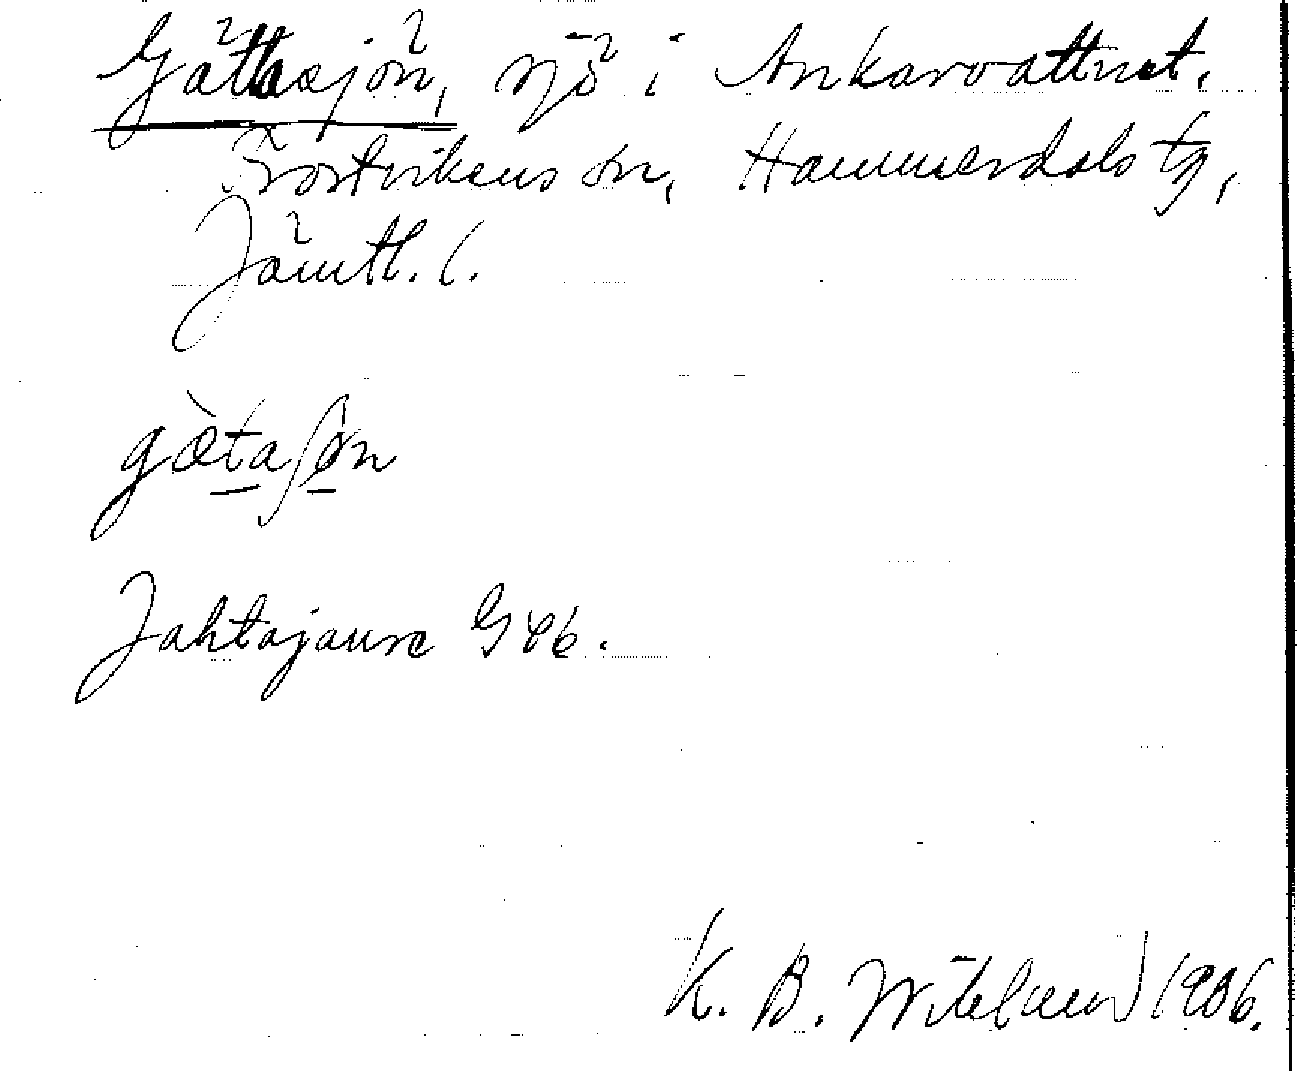 Gättasjön, sjö i Ankarvattnet,
Frostvikens sn, Hammerdals tg,
Jämtl. l.
gætaʃøn
Jahtajaure Gsb.
K. B. Wiklund 1906.